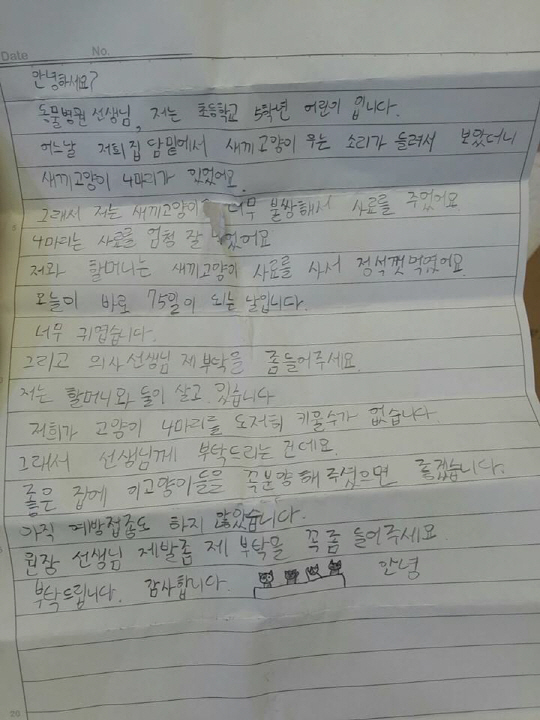 Date No.
안녕하세요?
동물병원 선생님, 저는 초등학교 5학년 어린이 입니다.
어느날 저희 집 담밑에서 새끼고양이 우는 소리가 들려서 보았더니
새끼고양이 4마리가 있었어요.
그래서 저는 새끼고양이 너무 불쌍해서 사료를 주었어요
4마리는 사료를 엄청 잘 었어요
저와 할머니는 새끼고양이 사료를 사서 정성껏먹였어요.
오늘이 바로 75일이 되는 날입니다.
너무 귀엽습니다.
그리고 의사선생님 제부탁을 좀들어주세요.
저는 할머니와 둘이 살고 있습니다
저희가 고양이 4마리를 도저히 키울수가 없습니다.
그래서 선생님께 부탁드리는 건데요.
좋은 집에 이고양이들을 꼭분양해 주셨으면 좋겠습니다.
아직 예방접종도 하지 않았습니다.
원장 선생님 제발좀 제 부탁을 꼭좀 들어주세요.
부탁드립니다. 감사합니다. 안녕
20